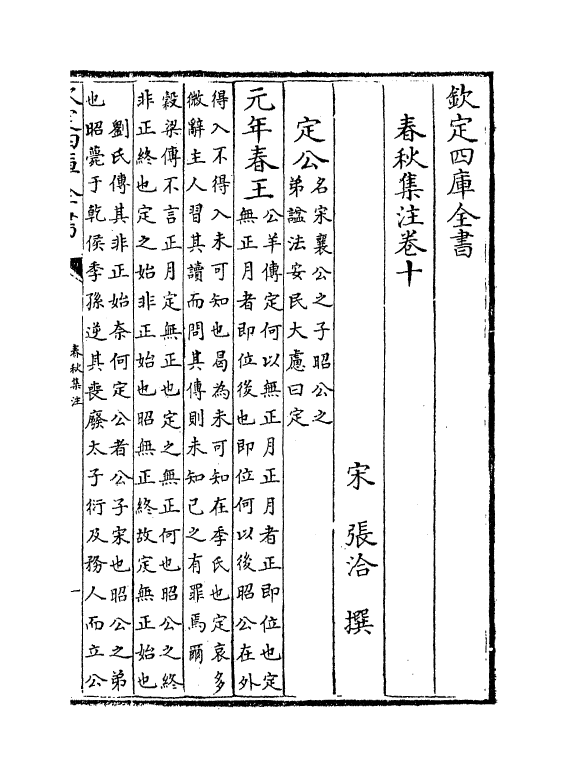 欽定四庫全書
春秋集注卷十
宋 張洽 撰
定公名宋襄公之子昭公之
弟諡法安民大慮曰定
元年春王公羊傳定何以無正月正月者正即位也定
無正月者即位後也即位何以後昭公在外
得入不得入未可知也曷為未可知在季氏也定哀多
微辭主人習其讀而問其傳則未知己之有罪焉爾
穀梁傳不言正月定無正也定之無正何也昭公之終
非正終也定之始非正始也昭無正終故定無正始也
劉氏傳其非正始奈何定公者公子宋也昭公之弟
也昭薨于乾侯季孫逆其喪廢太子衍及務人而立公
欽定四庫全書
春秋集注
一